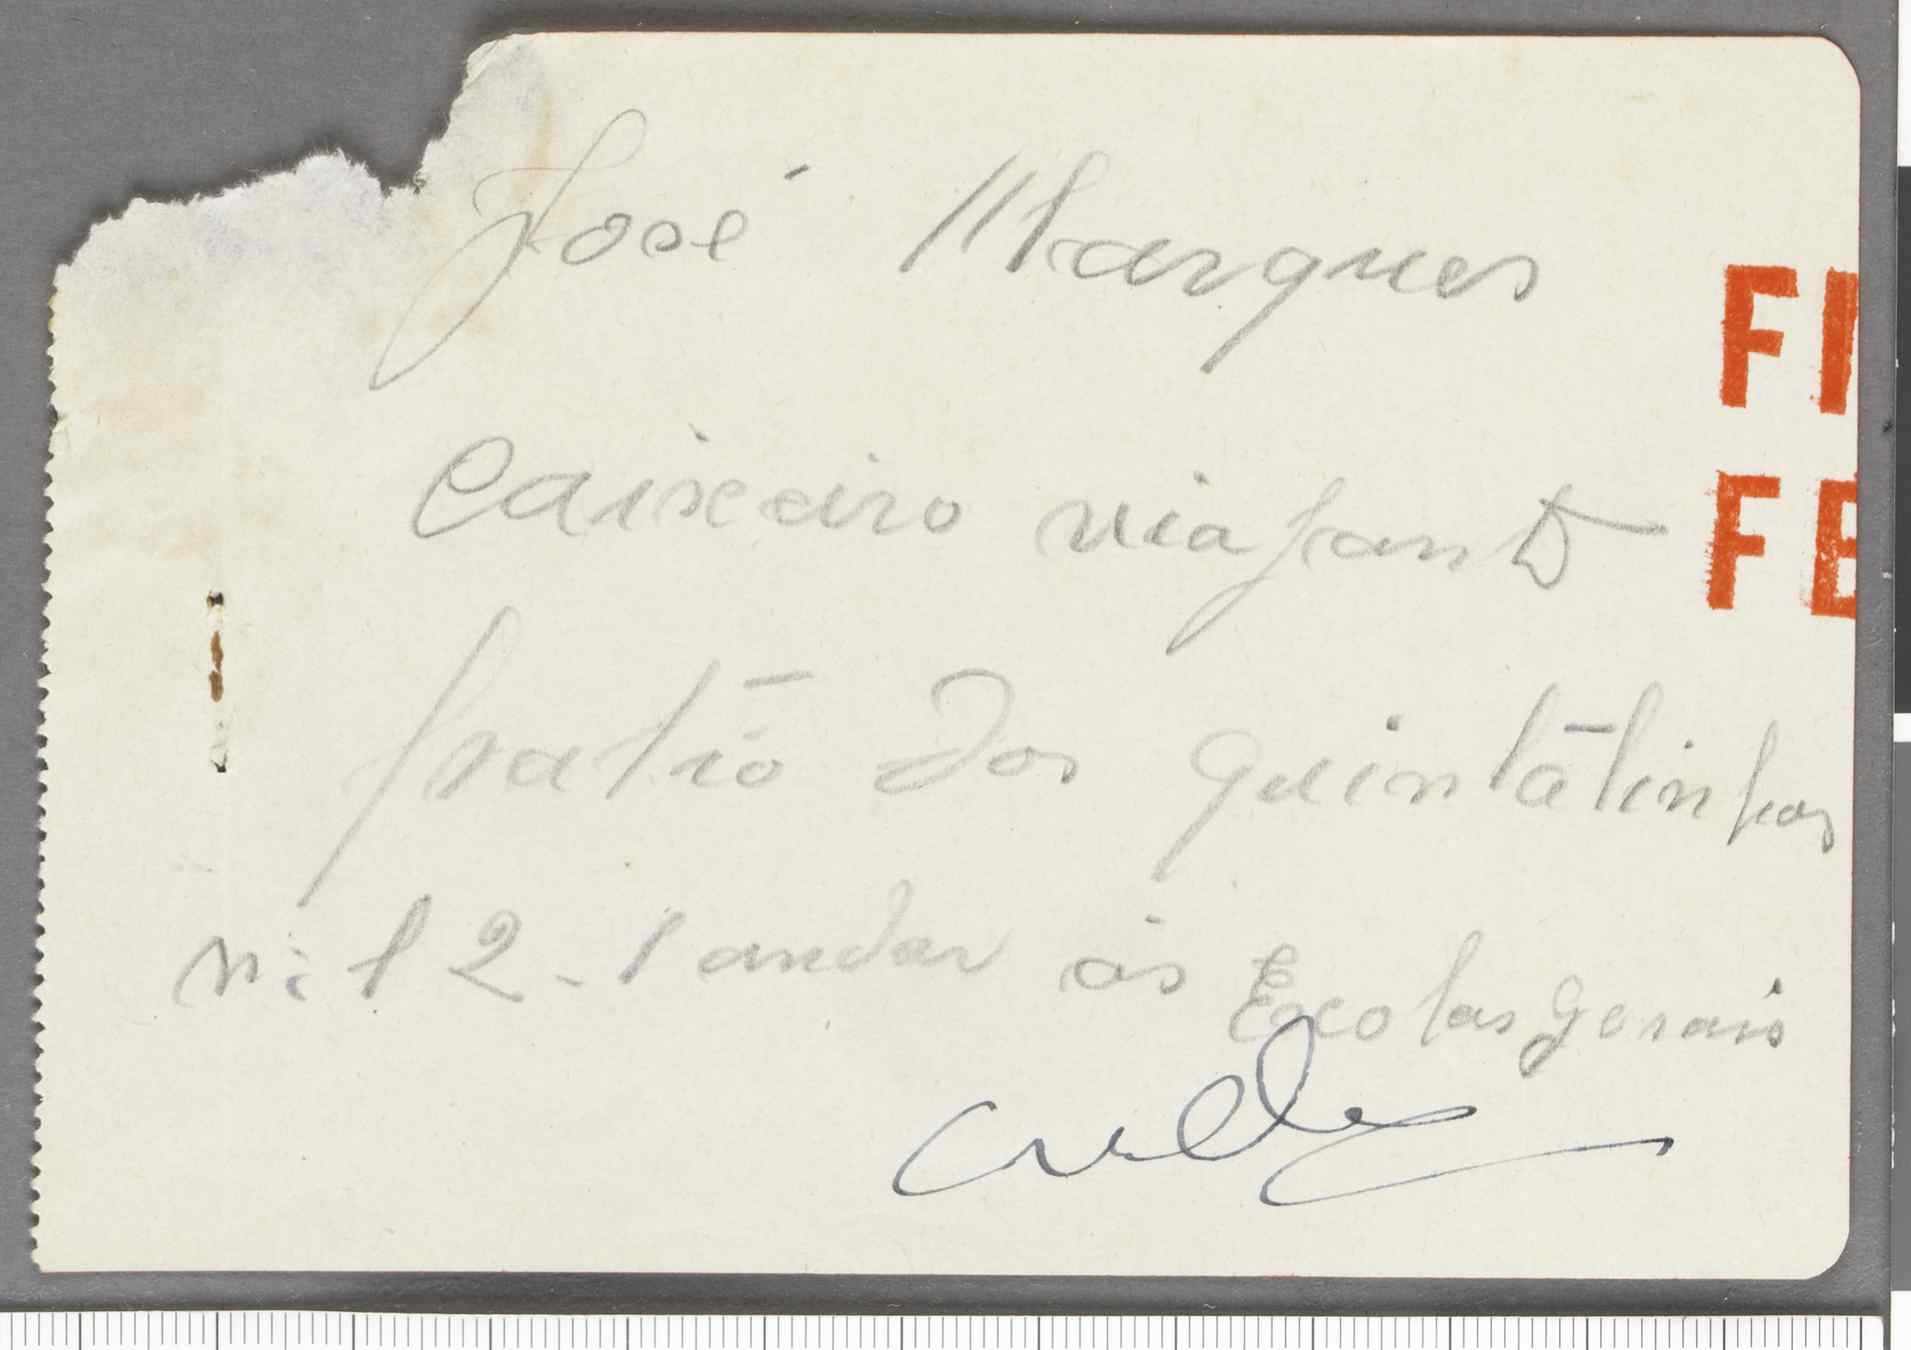 José Marques
FI
Caixeiro viajante
FE
Pratio dos quintalinhos
n: 12 - 1 andar às Escolas gerais